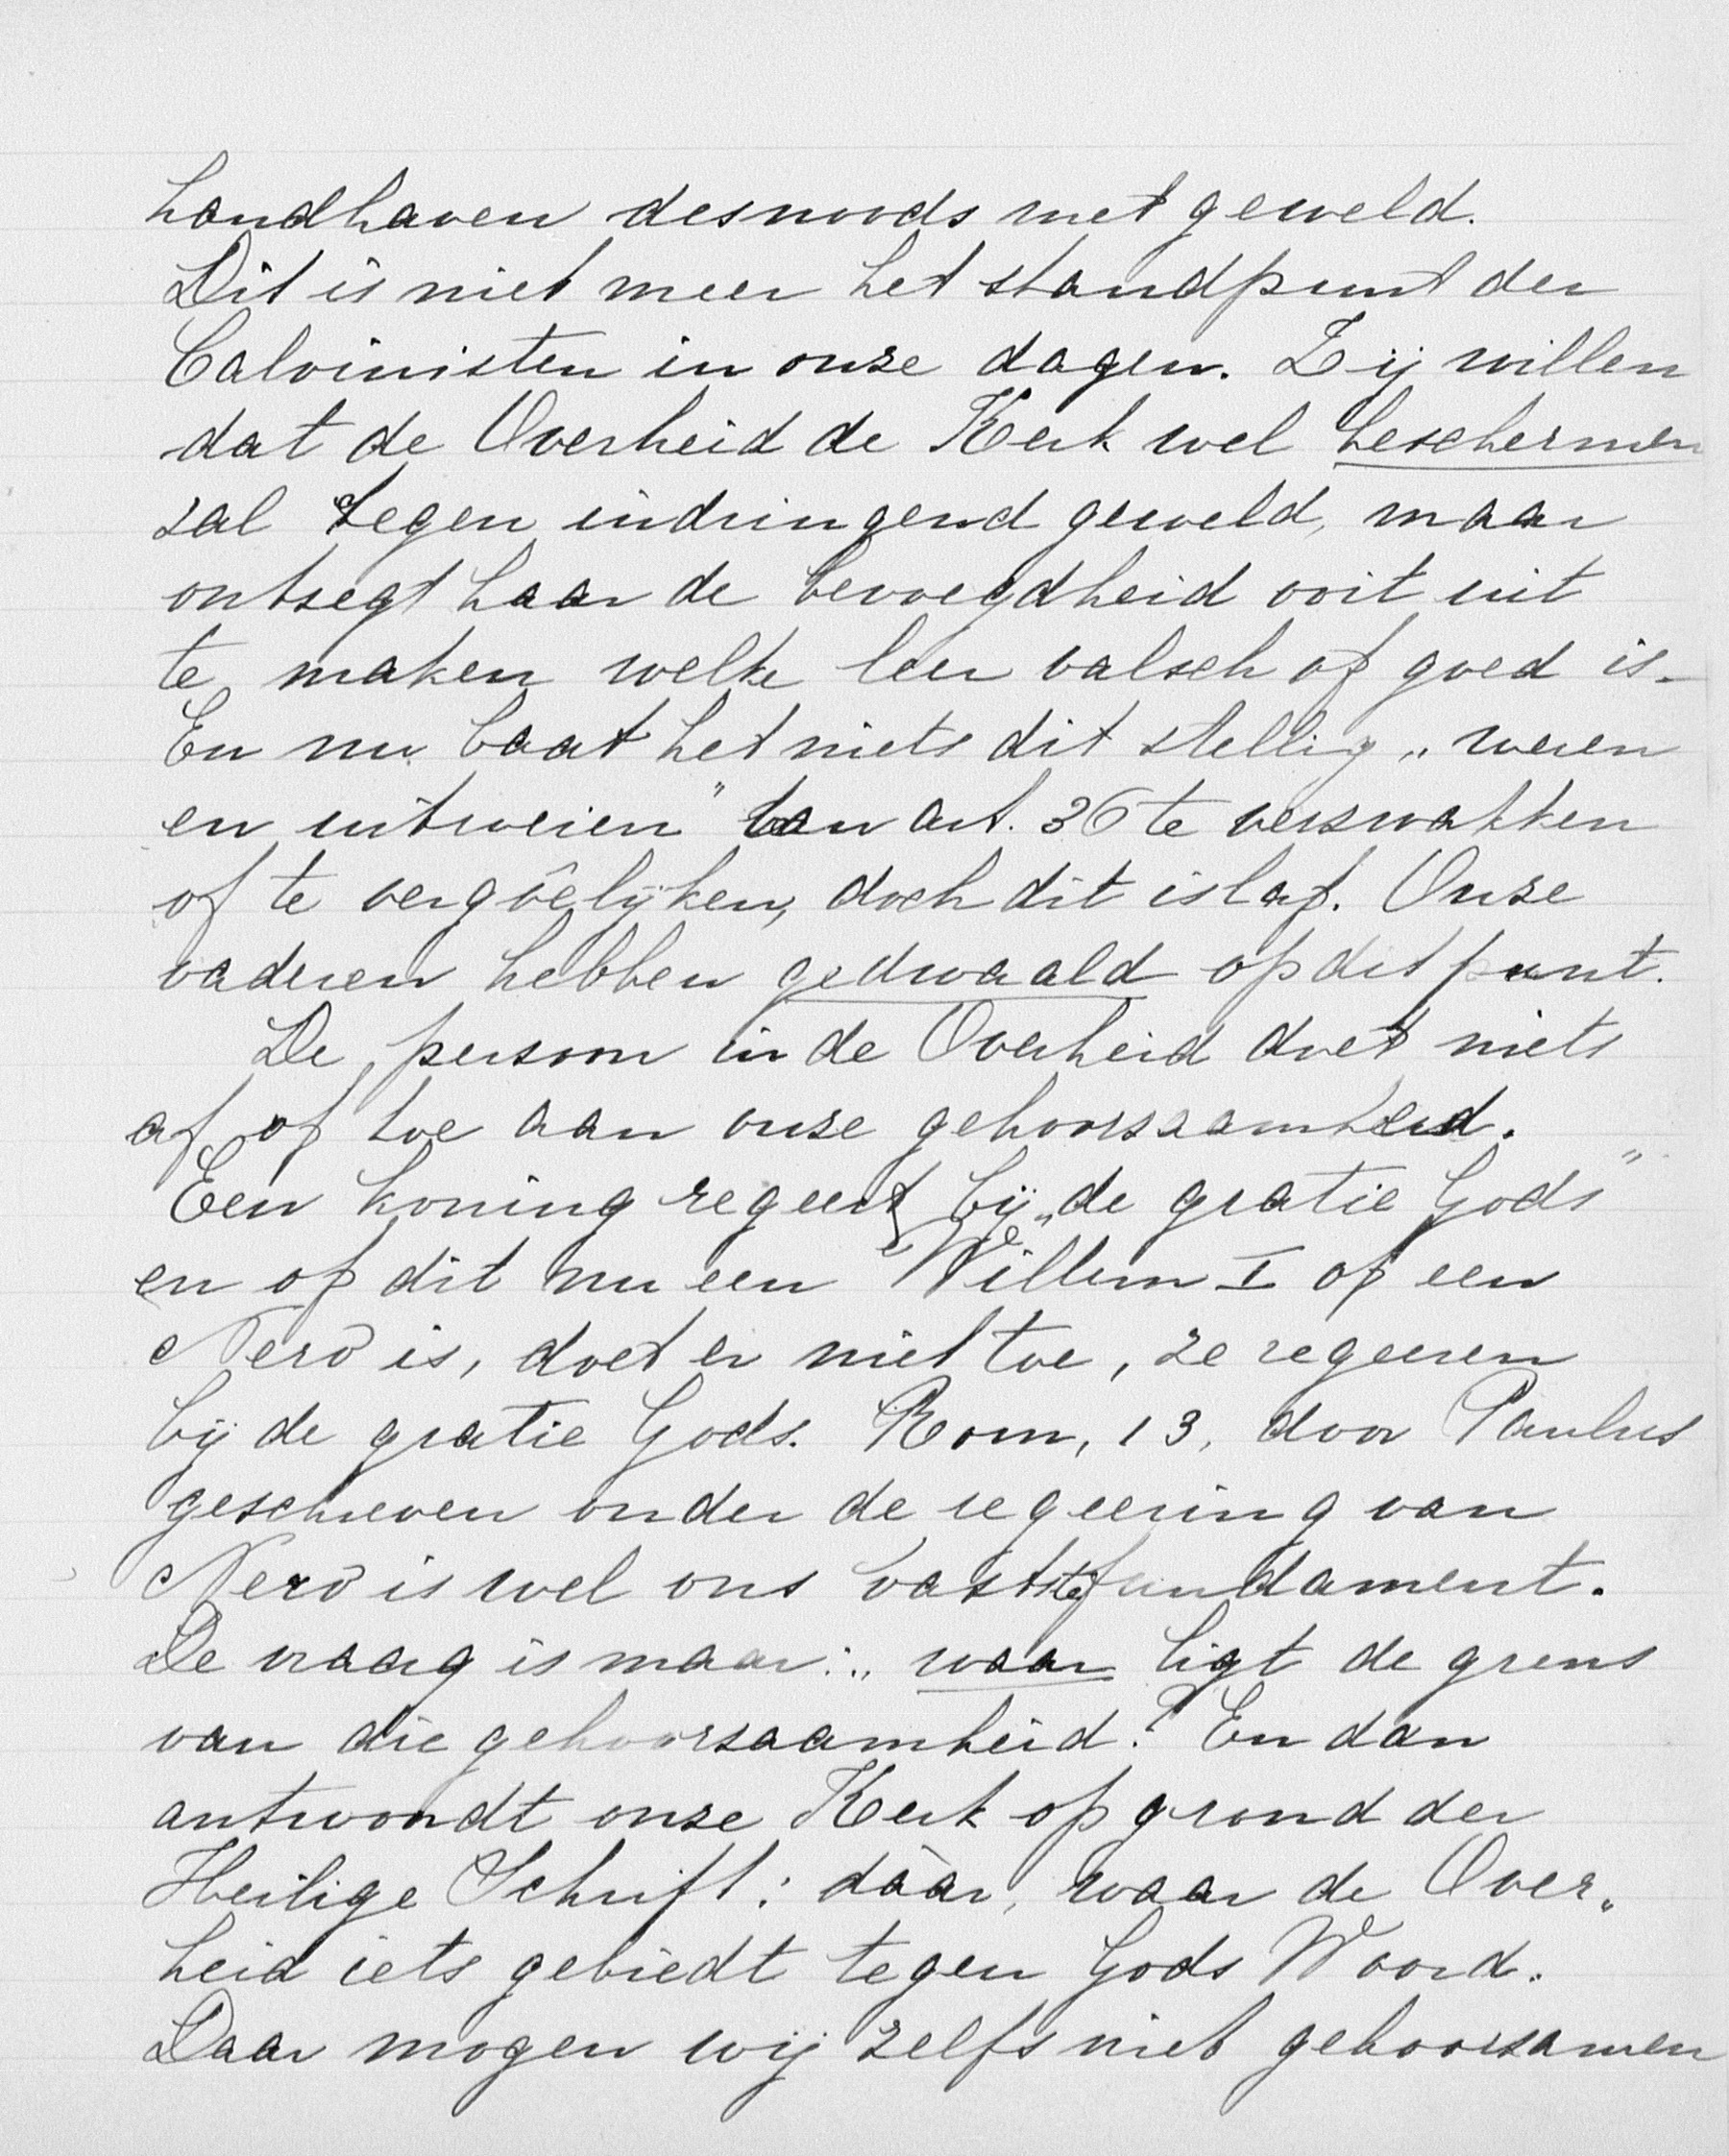 handhaven desnoods met geweld.
Dit is niet meer het standpunt der
Calvinisten in onze dagen. Zij willen
dat de Overheid de Kerk wel beschermen
zal tegen indringend geweld, maar
ontzegt haar de bevoegdheid ooit uit
te maken welke leer valsch of goed is.
En nu baat het niets dit stellig „weren
en uitroeien" van art. 36 te verzwakken
of te vergoêlijken, doch dit is laf. Onze
vaderen hebben gedwaald op dit punt.
De persoon in de Overheid doet niets
af of toe aan onze gehoorzaamheid.
Een koning regeert bij „de gratie Gods"
en of dit nu een Willem I of een
Nero is, doet er niet toe, ze regeeren
bij de gratie Gods. Rom, 13, door Paulus
geschreven onder de regeering van
Nero is wel ons vastste fundament.
De vraag is maar: „waar ligt de grens
van die gehoorzaamheid?" En dan
antwoordt onze Kerk op grond der
Heilige Schrift: dáár, waar de Over„
heid iets gebiedt tegen Gods Woord.
Daar mogen wij zelfs niet gehoorzamen